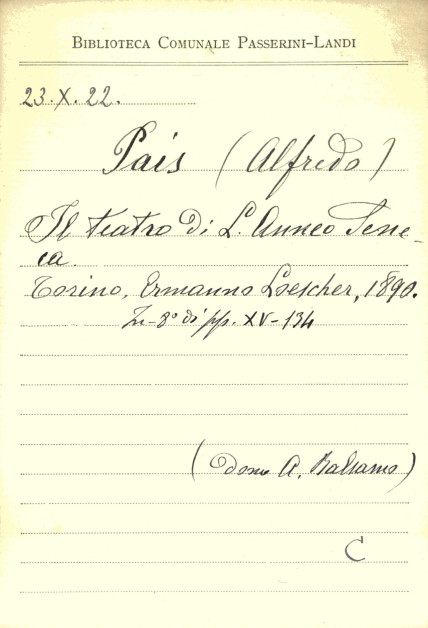 BIBLIOTECA COMUNALE PASSERINI-LANDI
23.X.22.
Pais (Alfredo)
Il teatro di L. Anneo Sene-
ca.
Torino, Ermanno Loescher, 1890.
In-8° di pp. XV-134
(dono A. Balsamo)
C